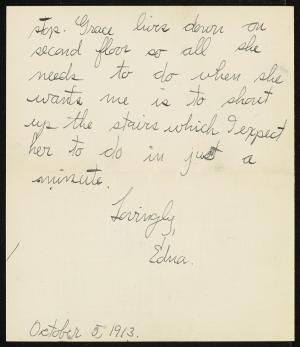 stop. Grace lives down on
second floor so all she
needs to do when she
wants me is to shout
up the stairs which I expect
her to do in just a
minute.
Lovingly,
Edna.
October 5, 1913.